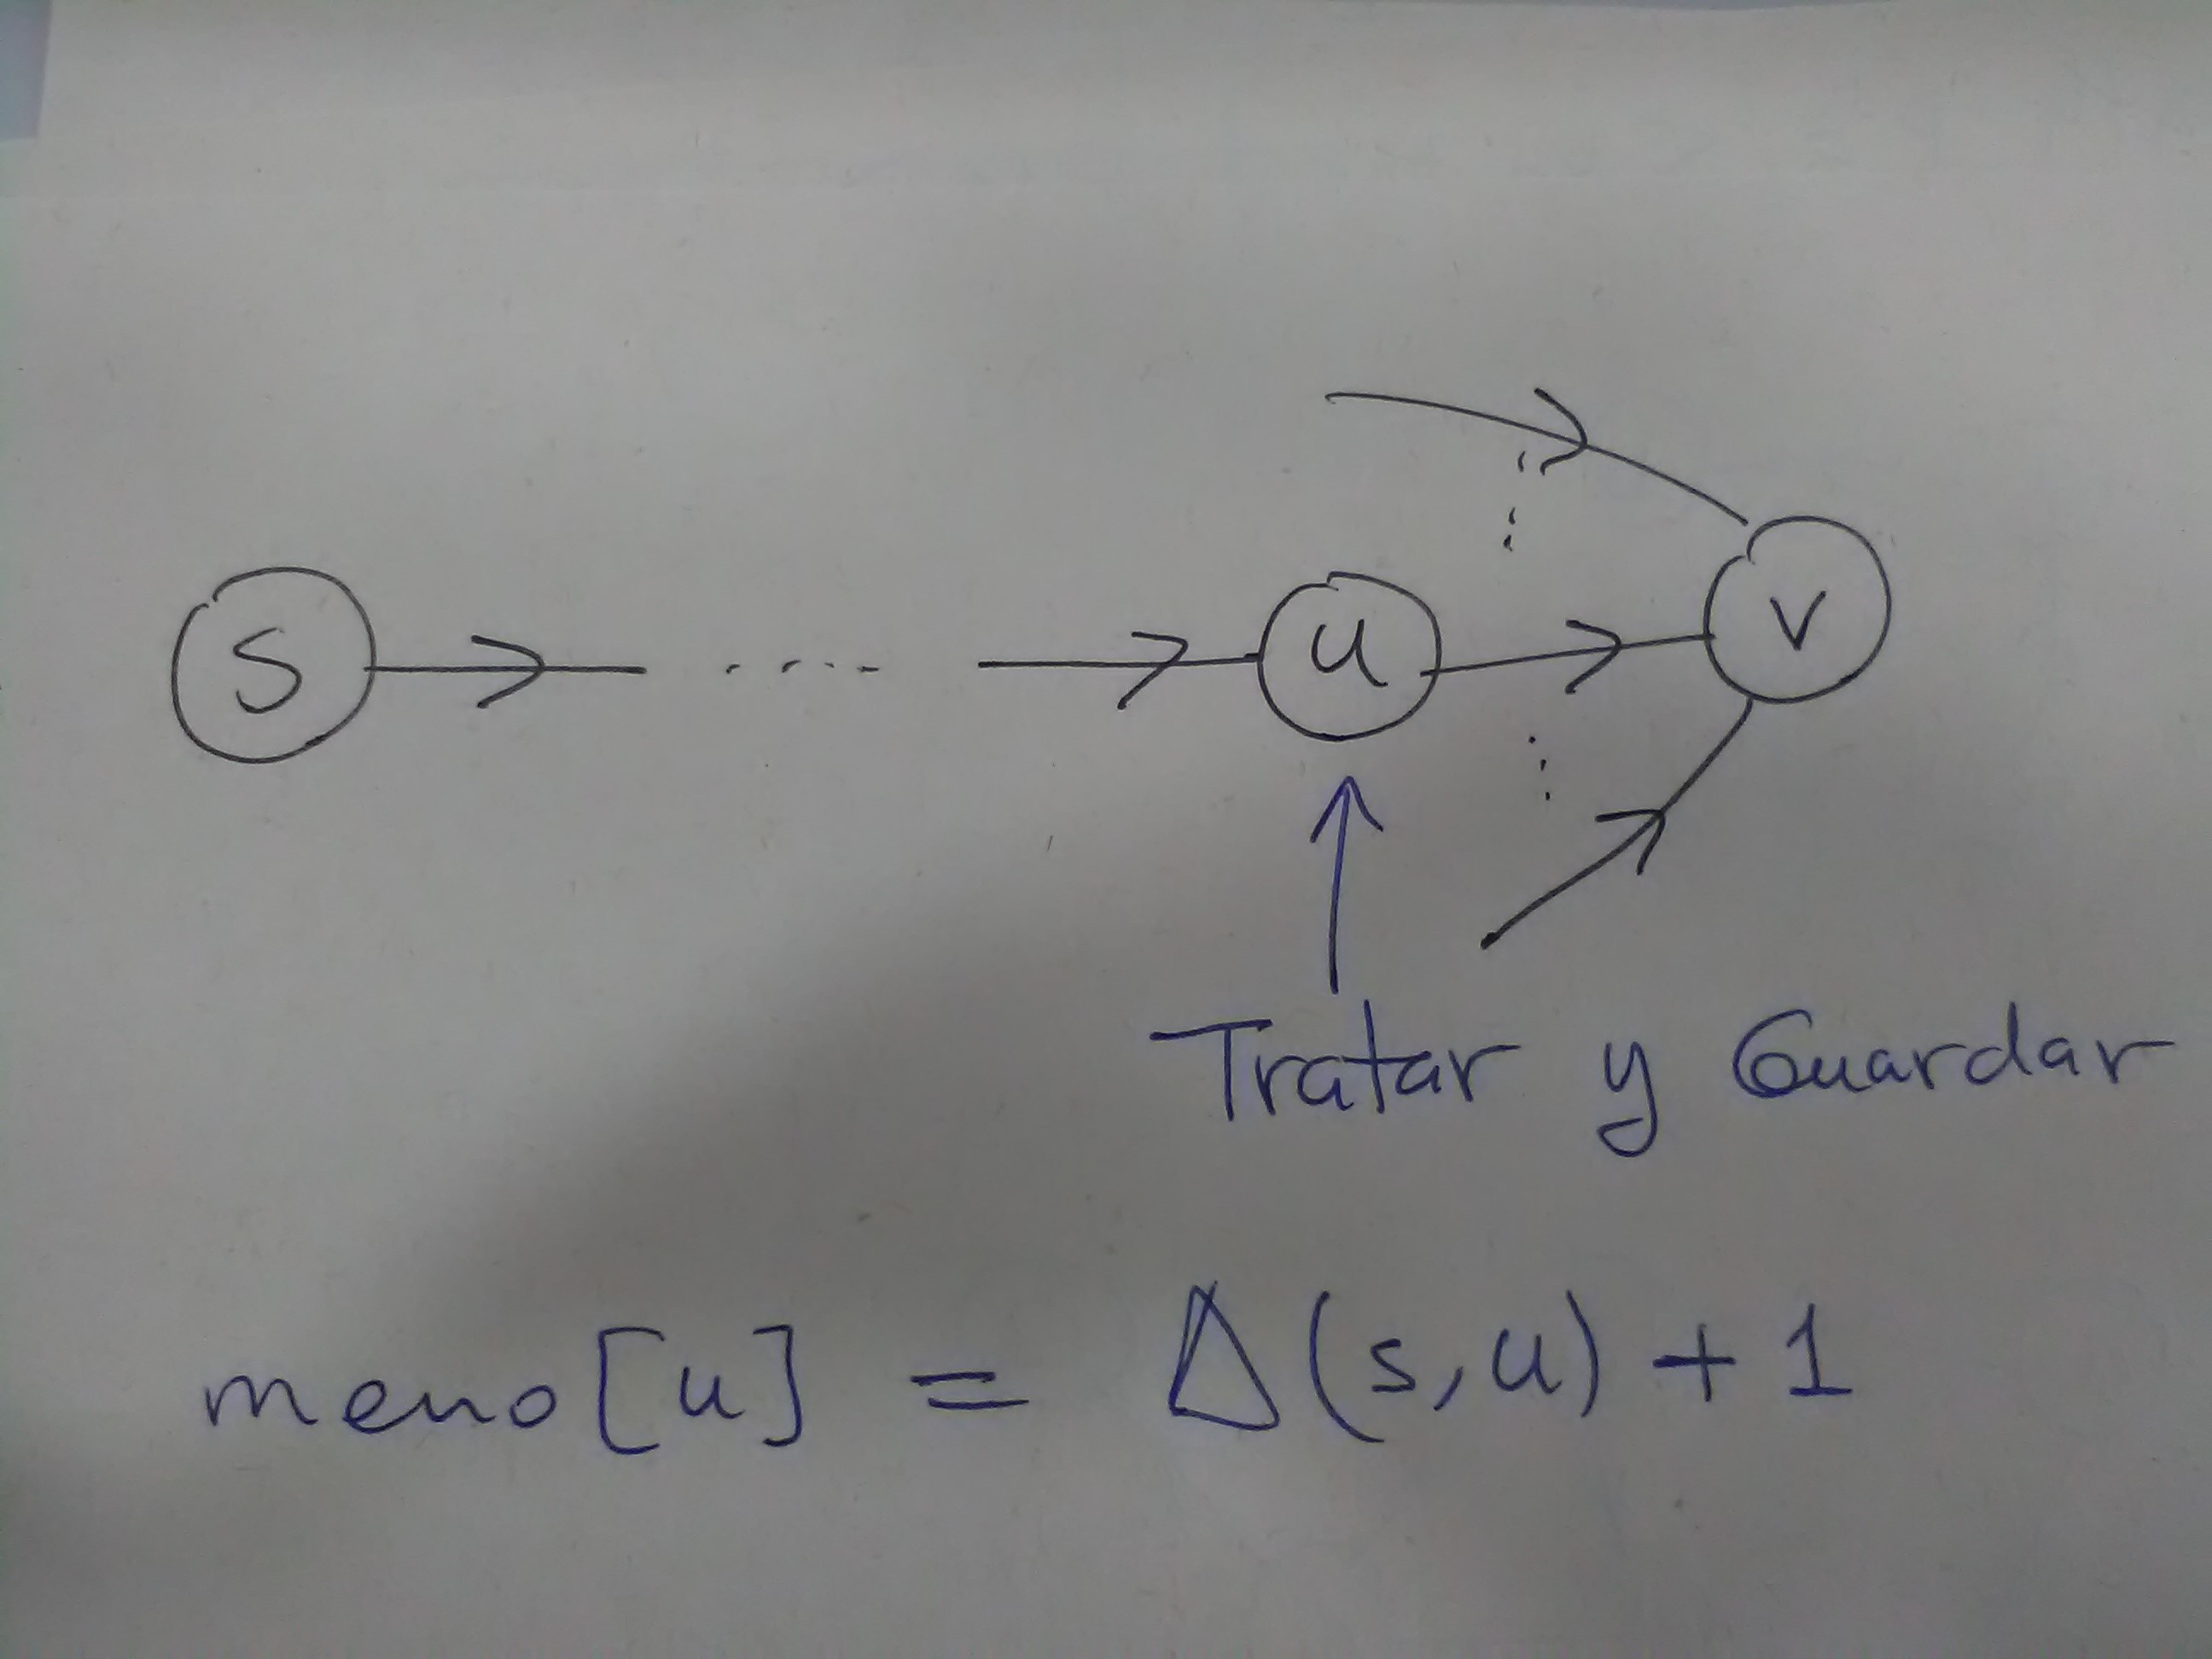 S
u
v
Tratar y Guardar
memo[u] = Δ(s,u)+1